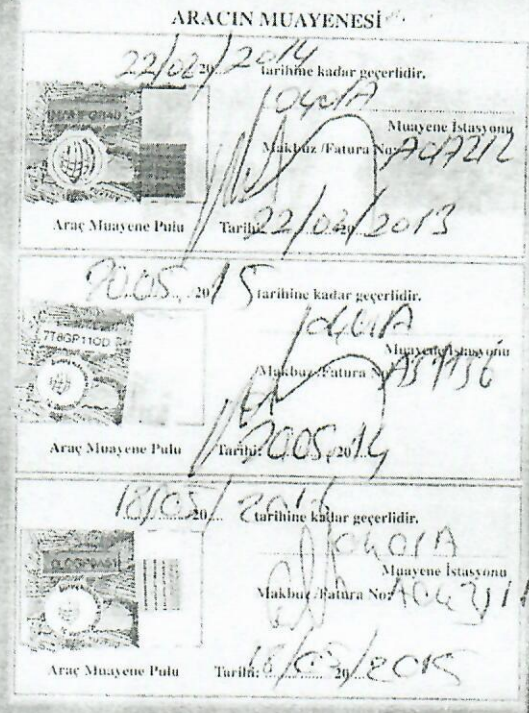 ARACIN MUAYENESİ
22/02/2014 tarihine kadar geçerlidir.
0401A
Muayene İstasyonu
Makbuz /Fatura No:
Araç Muayene Pulu Tarihi: 22/02/2013
20.05. 2015 tarihine kadar geçerlidir.
7T8GP11OD
0401A
Muayene İstasyonu
Makbuz /Fatura No
Araç Muayene Pulu Tarihi: 20.05.2014
18/05/ 20 tarihine kadar geçerlidir.
0401A
Muayene İstasyonu
Makbuz /Fatura No:
Araç Muayene Pulu Tarihi: 18/05/2015